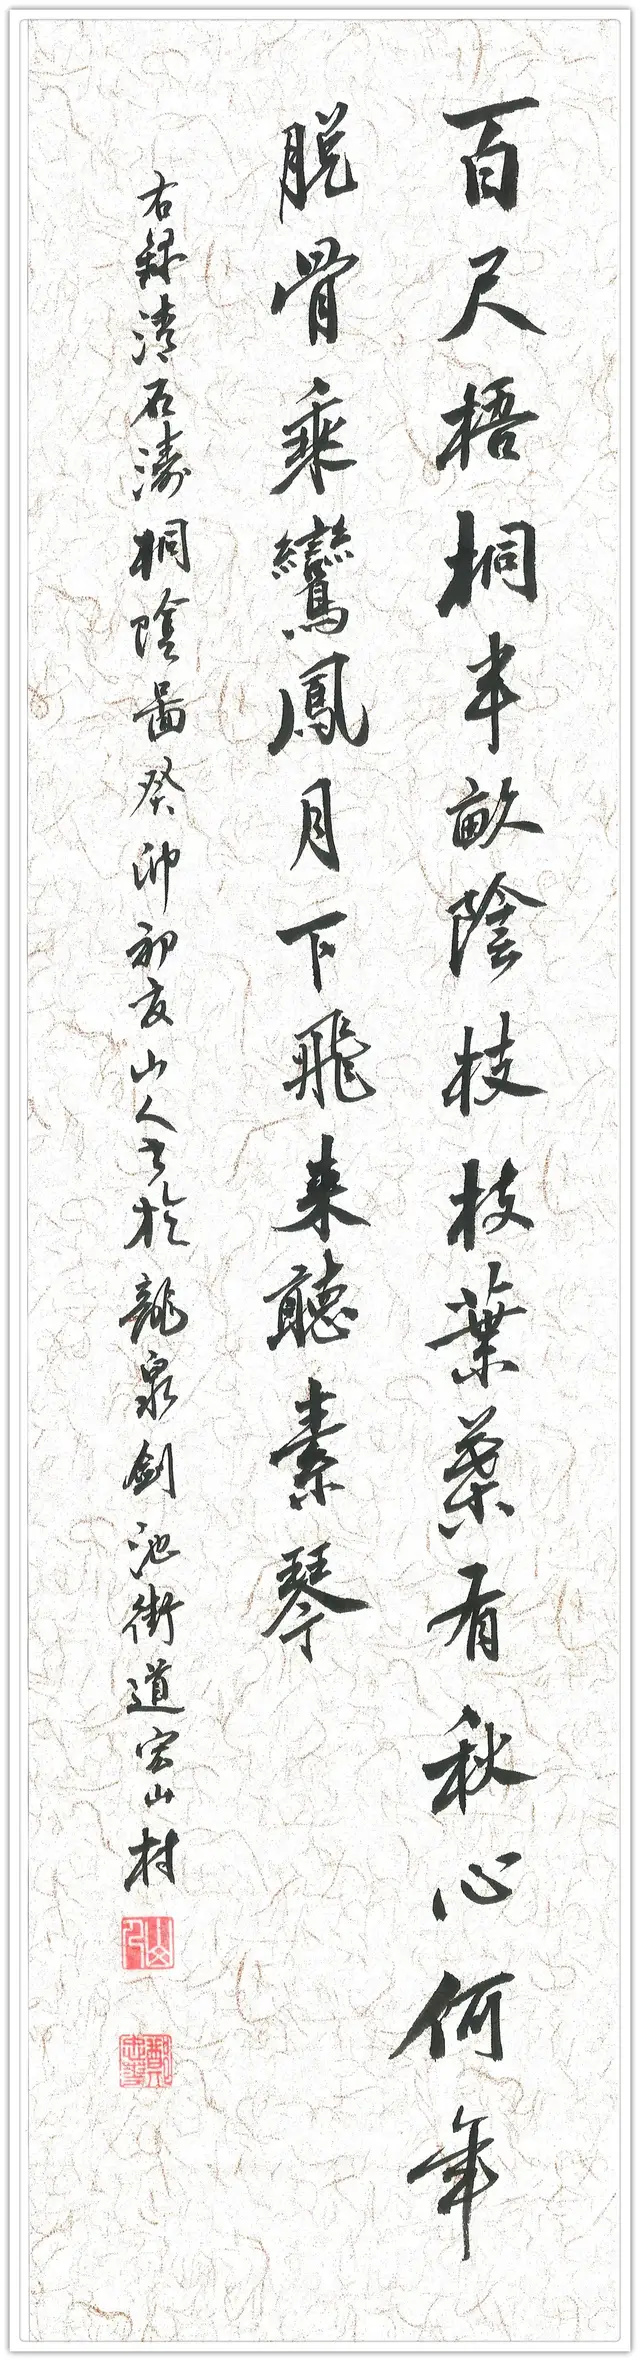 百尺梧桐半畝陰枝枝葉葉有秋心何年
脱骨乘鸞鳳月下飛来聽素琴
右録清石濤桐陰畵癸卯初夏山人书於龍泉剑池街道宏山村
山人